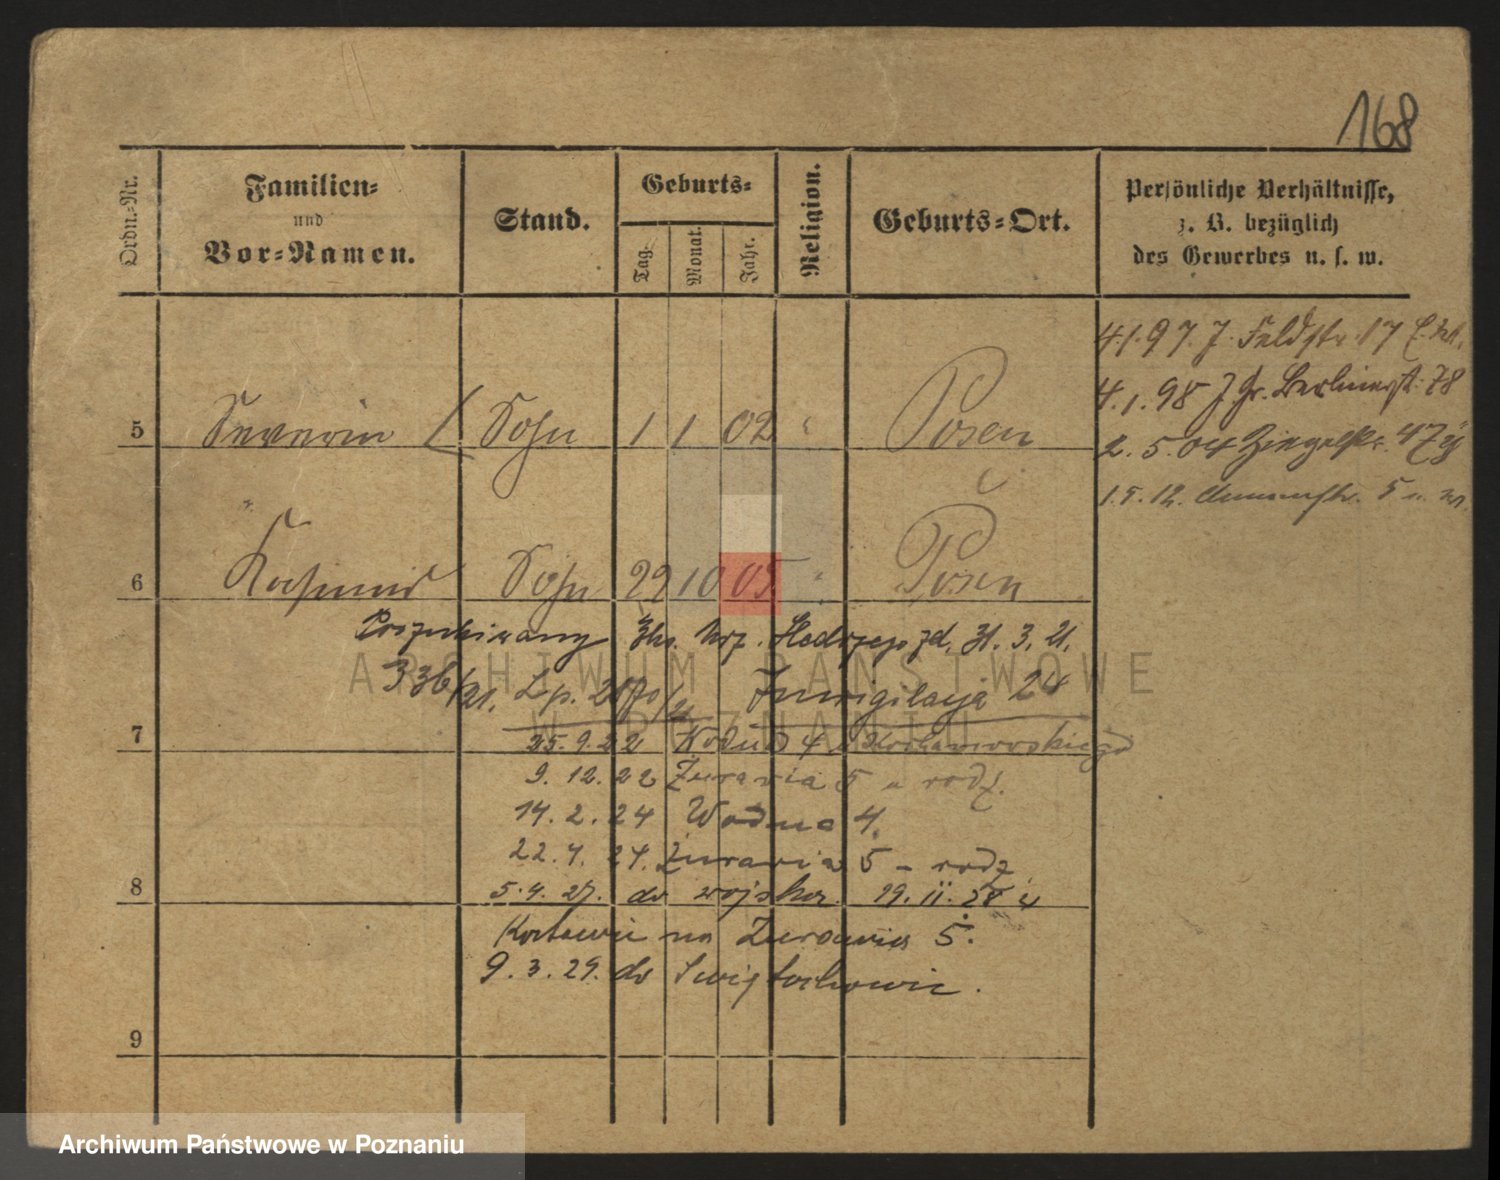 168
Ordn.-Nr.
Familien-
und
Vor-Namen.
Stand.
Geburts-
Tag.
Monat.
Jahr.
Religion.
Geburts-Ort.
Persönliche Verhältnisse,
z. B. bezüglich
des Gewerbes u. s. w.
4.1.97. J. Feldstr. 17
4.1.98 J Gr. Berlinerst. 78
5 Severin Sohn 1 1 02 " Posen
2. 5. 04 Ziegelstr.
1.5.12. 5
"
6 Kasimir Sohn 29 10 05 " Posen
Poszukiwany 31. 3. 21.
336/21. Lp. Inwigilacja
ARCHIWUM PAŃSTWOWE
W POZNANIU
7
25.9.22 Wodna 4
9. 12. 22 Żurawia 5 u rodz.
14. 2. 24 Wodna 4.
22. 4. 24. Żurawia 5 - rodz.
8
5.4. 27. do wojska. 19. II. 28 z
Katowic na Żurawia 5.
9. 3. 29. do Świętochowic.
9
Archiwum Państwowe w Poznaniu